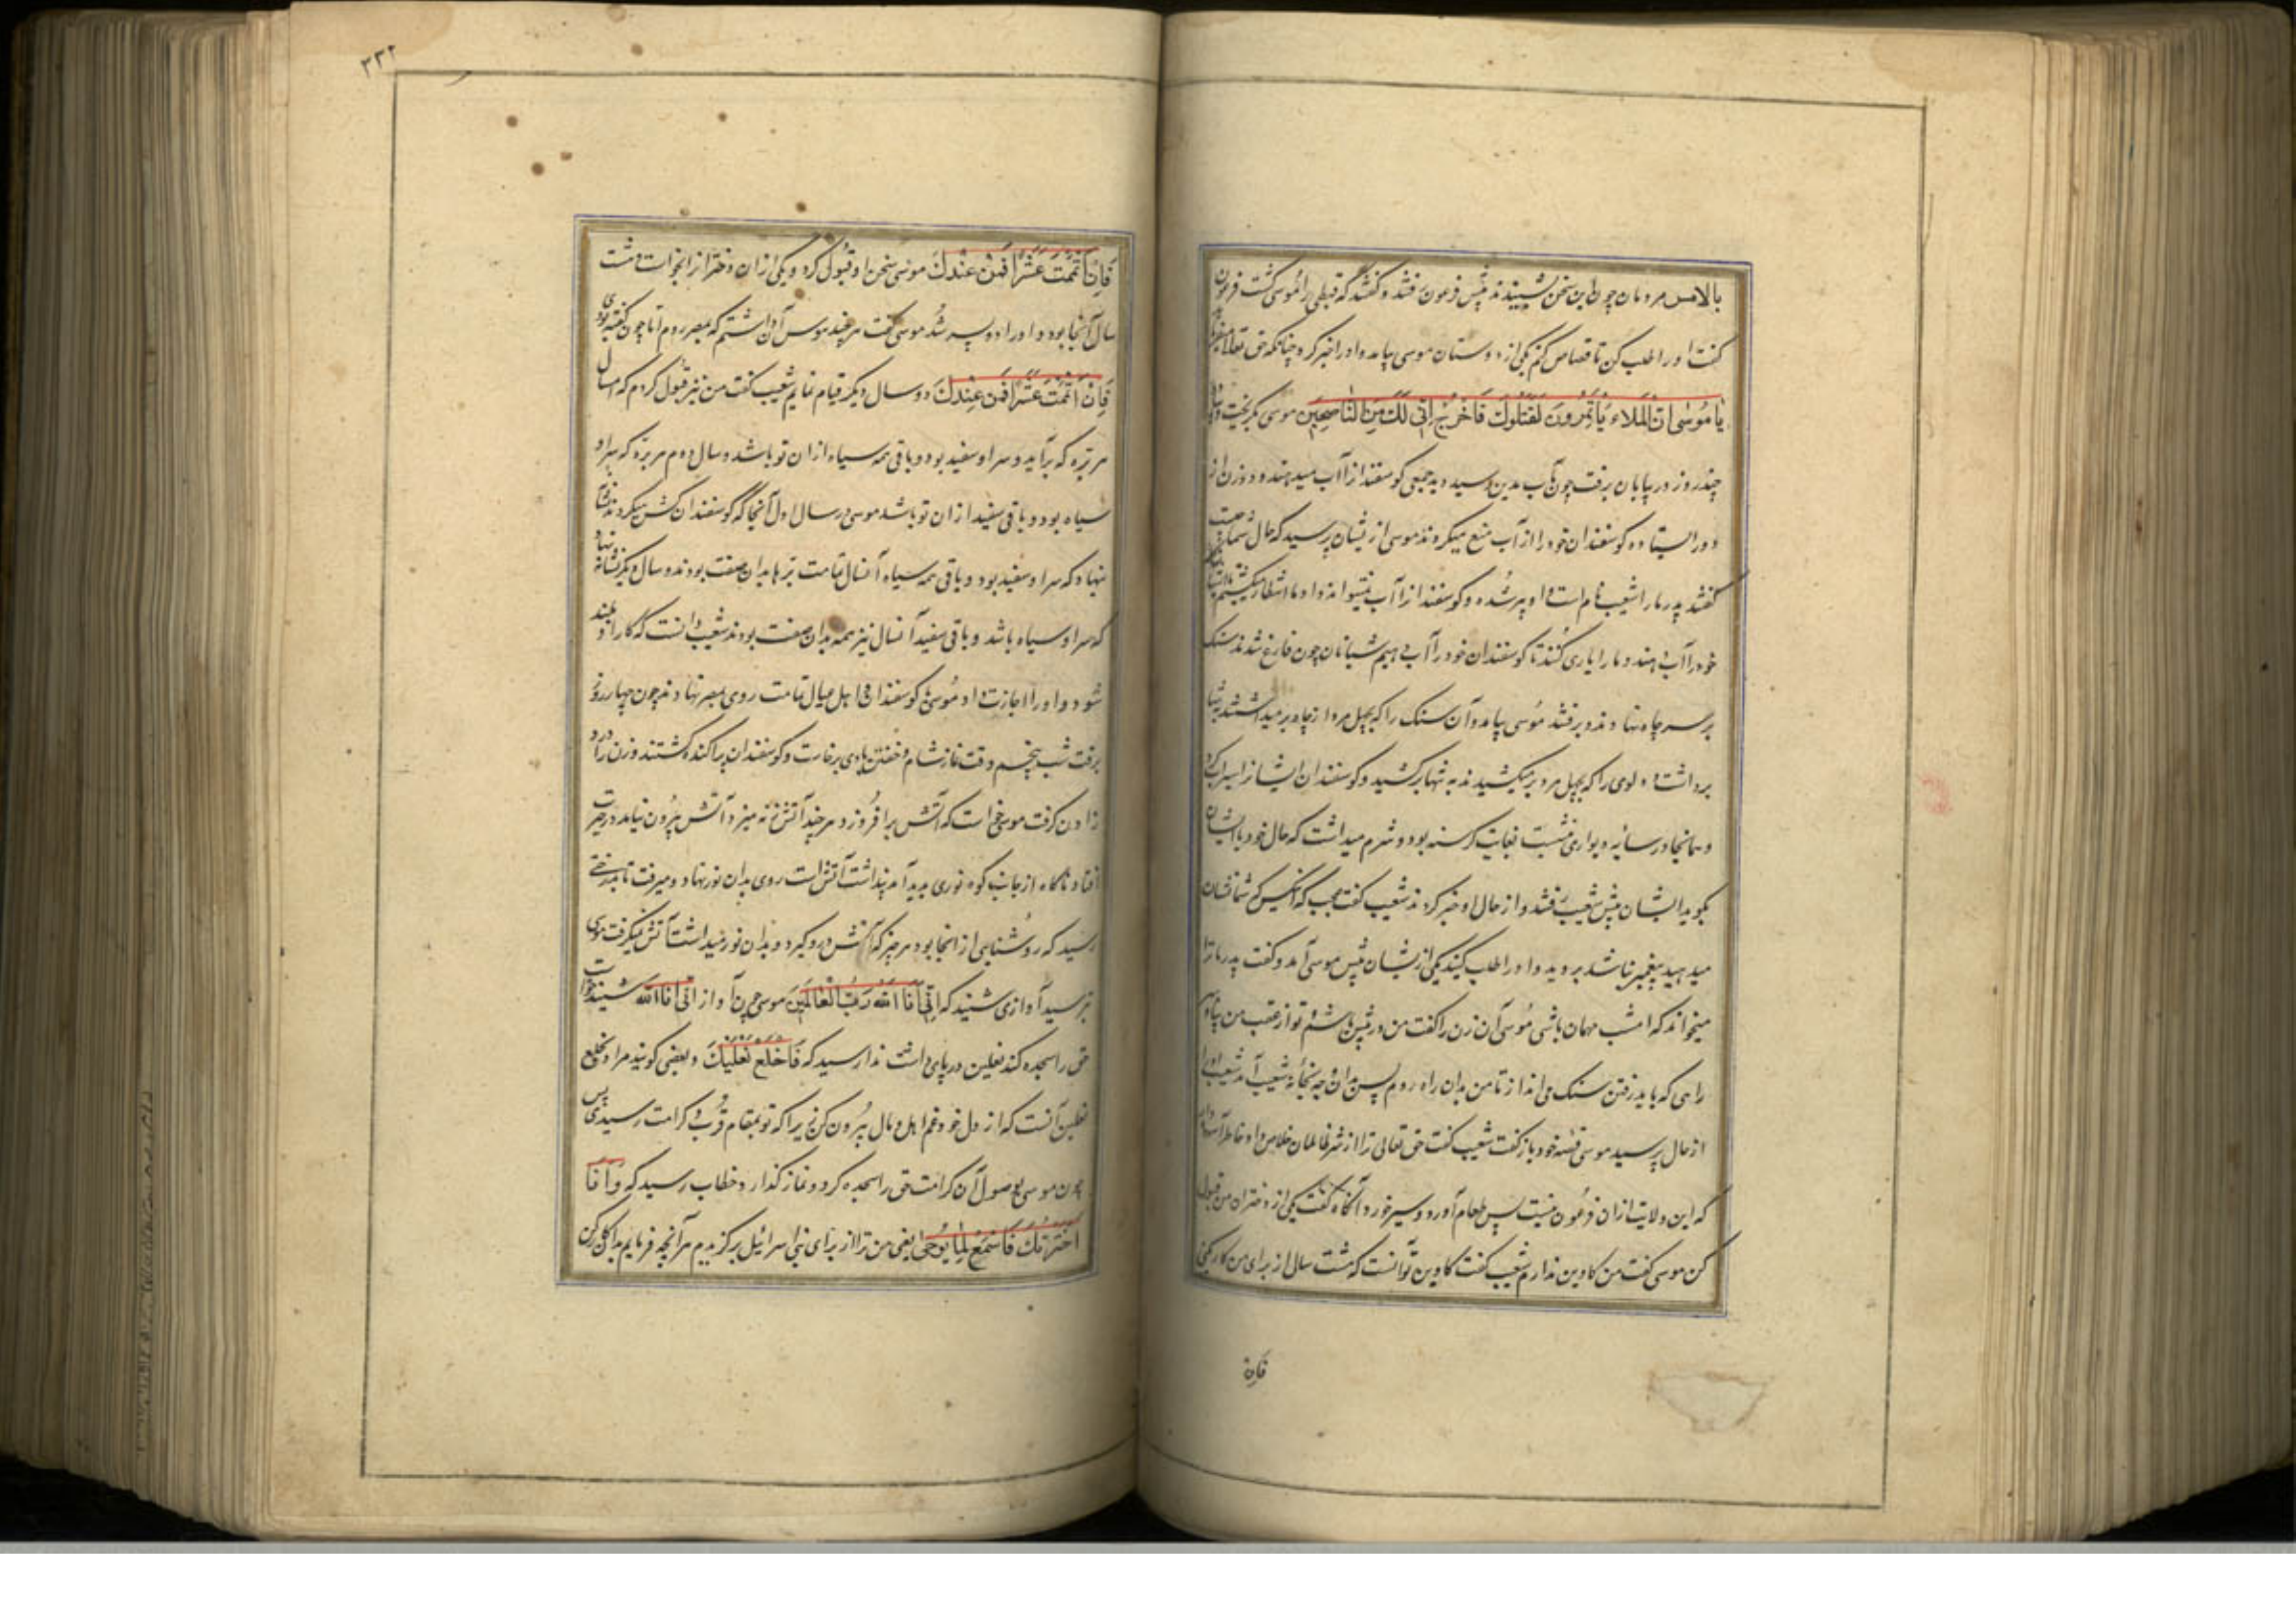 بالامس مردمان چون این سخن شنیدند پیش فرعون رفتند و گفتند که قبطی را موسی کشت فرعون
گفت او را طلب کن تا قصاص کنم یکی از دوستان موسی بیامد و او را خبر کرد چنانکه حق تعالی میفرماید
یا مُوسٰی انّ الَملاء یَأتمِرُونَ لَقتلُوكَ فَاخرُج اِنّی لَكَ مِنَ النّاصِحِینَ موسی بگریخت و تنها
چند روز در بیابان برفت چون بآب مدین رسید دید جمعی گوسفند از آب میدهند و دو زن از
دور ایستاده گوسفندان خود را از آب منع میکردند موسی ازیشان پرسید که حال شما چیست
گفتند پدر ما را شعیب نام است او پیر شده و گوسفند از آب نمیتواند داد ما انتظار میکشیم تا شبانان
خود را آب دهند و ما را یاری کنند تا گوسفندان خود را آب دهیم شبانان چون فارغ شدند سنک
بر سر چاه نهادند و برفتند موسی بیامد و آن سنک را که بچهل مرد از چاه بر میداشتند به تنها
برداشت و دلوی را که بچهل مرد بر میکشیدند به تنها برکشید و گوسفندان ایشانرا سیراب کرد
و همانجا در سایه دیواری بنشست بغایت گرسنه بود و شرم میداشت که حال خود با ایشان
بگوید ایشان پیش شعیب رفتند و از حال او خبر کردند شعیب گفت عجب که آنکس که شما نشان
میدهید پیغمبر نباشد بروید و او را طلب کنید یکی ازیشان پیش موسی آمد و گفت پدر ما ترا
میخواند که امشب مهمان باشی موسی آن زن را گفت من در پیش باشم تو از عقب من بیا و
راهی که باید رفتن سنک می انداز تا من بدان راه روم پس بدان وجه بخانه شعیب آمد شعیب او را
از حال پرسید موسی قصه خود باز گفت شعیب گفت حق تعالی ترا از شر ظالمان خلاص داد خاطر آسوده دار
که این ولایت از ان فرعون نیست پس طعام آورد و سیر خورد آنگاه گفت یکی از دختران من قبول
کن موسی گفت من کاوین ندارم شعیب گفت کاوین تو آنست که هشت سال از برای من کار کنی
فَاِن
۳۳۲
فَاِن اَتمَمتَ عَشرًا فمِن عِندِكَ موسی سخن او قبول کرد و یکی از ان دختر از انخواست هشت
سال آنجا بود و او را دو پسر شد موسی گفت هر چند هوس آن داشتم که بمصر روم اما چون گفته بودی
فَاِن اَتمَمتَ عَشرًا فمِن عِندِكَ دو سال دیگر قیام نمایم شعیب گفت من نیز قبول کردم که امسال
هر بره که برآید و سر او سفید بود و باقی همه سیاه از ان تو باشد و سال دوم هر بره که سر او
سیاه بود و باقی سفید از ان تو باشد موسی در سال اول آنجا که گوسفندان گشن میکردند
نهاد که سر او سفید بود و باقی همه سیاه آنسال تمامت بزها بدان صفت بودند و سال دیگر نشانه نهاد
که سر او سیاه باشد و باقی سفید آنسال نیز همه بدان صفت بودند شعیب دانست که کار او بلند
شود و او را اجازت داد موسی با گوسفندان و اهل عیال تمامت روی بمصر نهادند چون چهار روز
برفت شب پنجم وقت نماز شام و خفتن بادی برخاست و گوسفندان پراکنده گشتند و زن را درد
زادن گرفت موسی خواست که آتش برافروزد هر چند آتش زنه میزد آتش بیرون نیامد در حیرت
افتاد ناگاه از جانب کوه نوری پدید آمد پنداشت آتش است روی بدان نور نهاد و میرفت تا بدرختی
رسید که روشنایی از انجا بود هر چیز که آتش درو گیرد و بدان نور میداشت آتش نمیگرفت موسی
بترسید آوازی شنید که اِنّی اَنَا الله رَبُّ العٰالَمِینَ موسی چون آواز انی انا الله شنید خواست
حق را سجده کند نعلین در پای داشت ندا رسید که فَاخلَع نَعلَیكَ و بعضی گویند مراد بخلع
نعلین آنست که از دل خود غم اهل و مال بیرون کن زیرا که تو بمقام قرب و کرامت رسیدی پس
چون موسی بوصول آن کرامت حق را سجده کرد و نماز گذارد خطاب رسید که وَ اَنَا
اختَرتُكَ فَاستَمِع لِمٰا یُوحیٰ یعنی من ترا از برای بنی اسرائیل برگزیدم هر آنچه فرمایم بدان کار کن